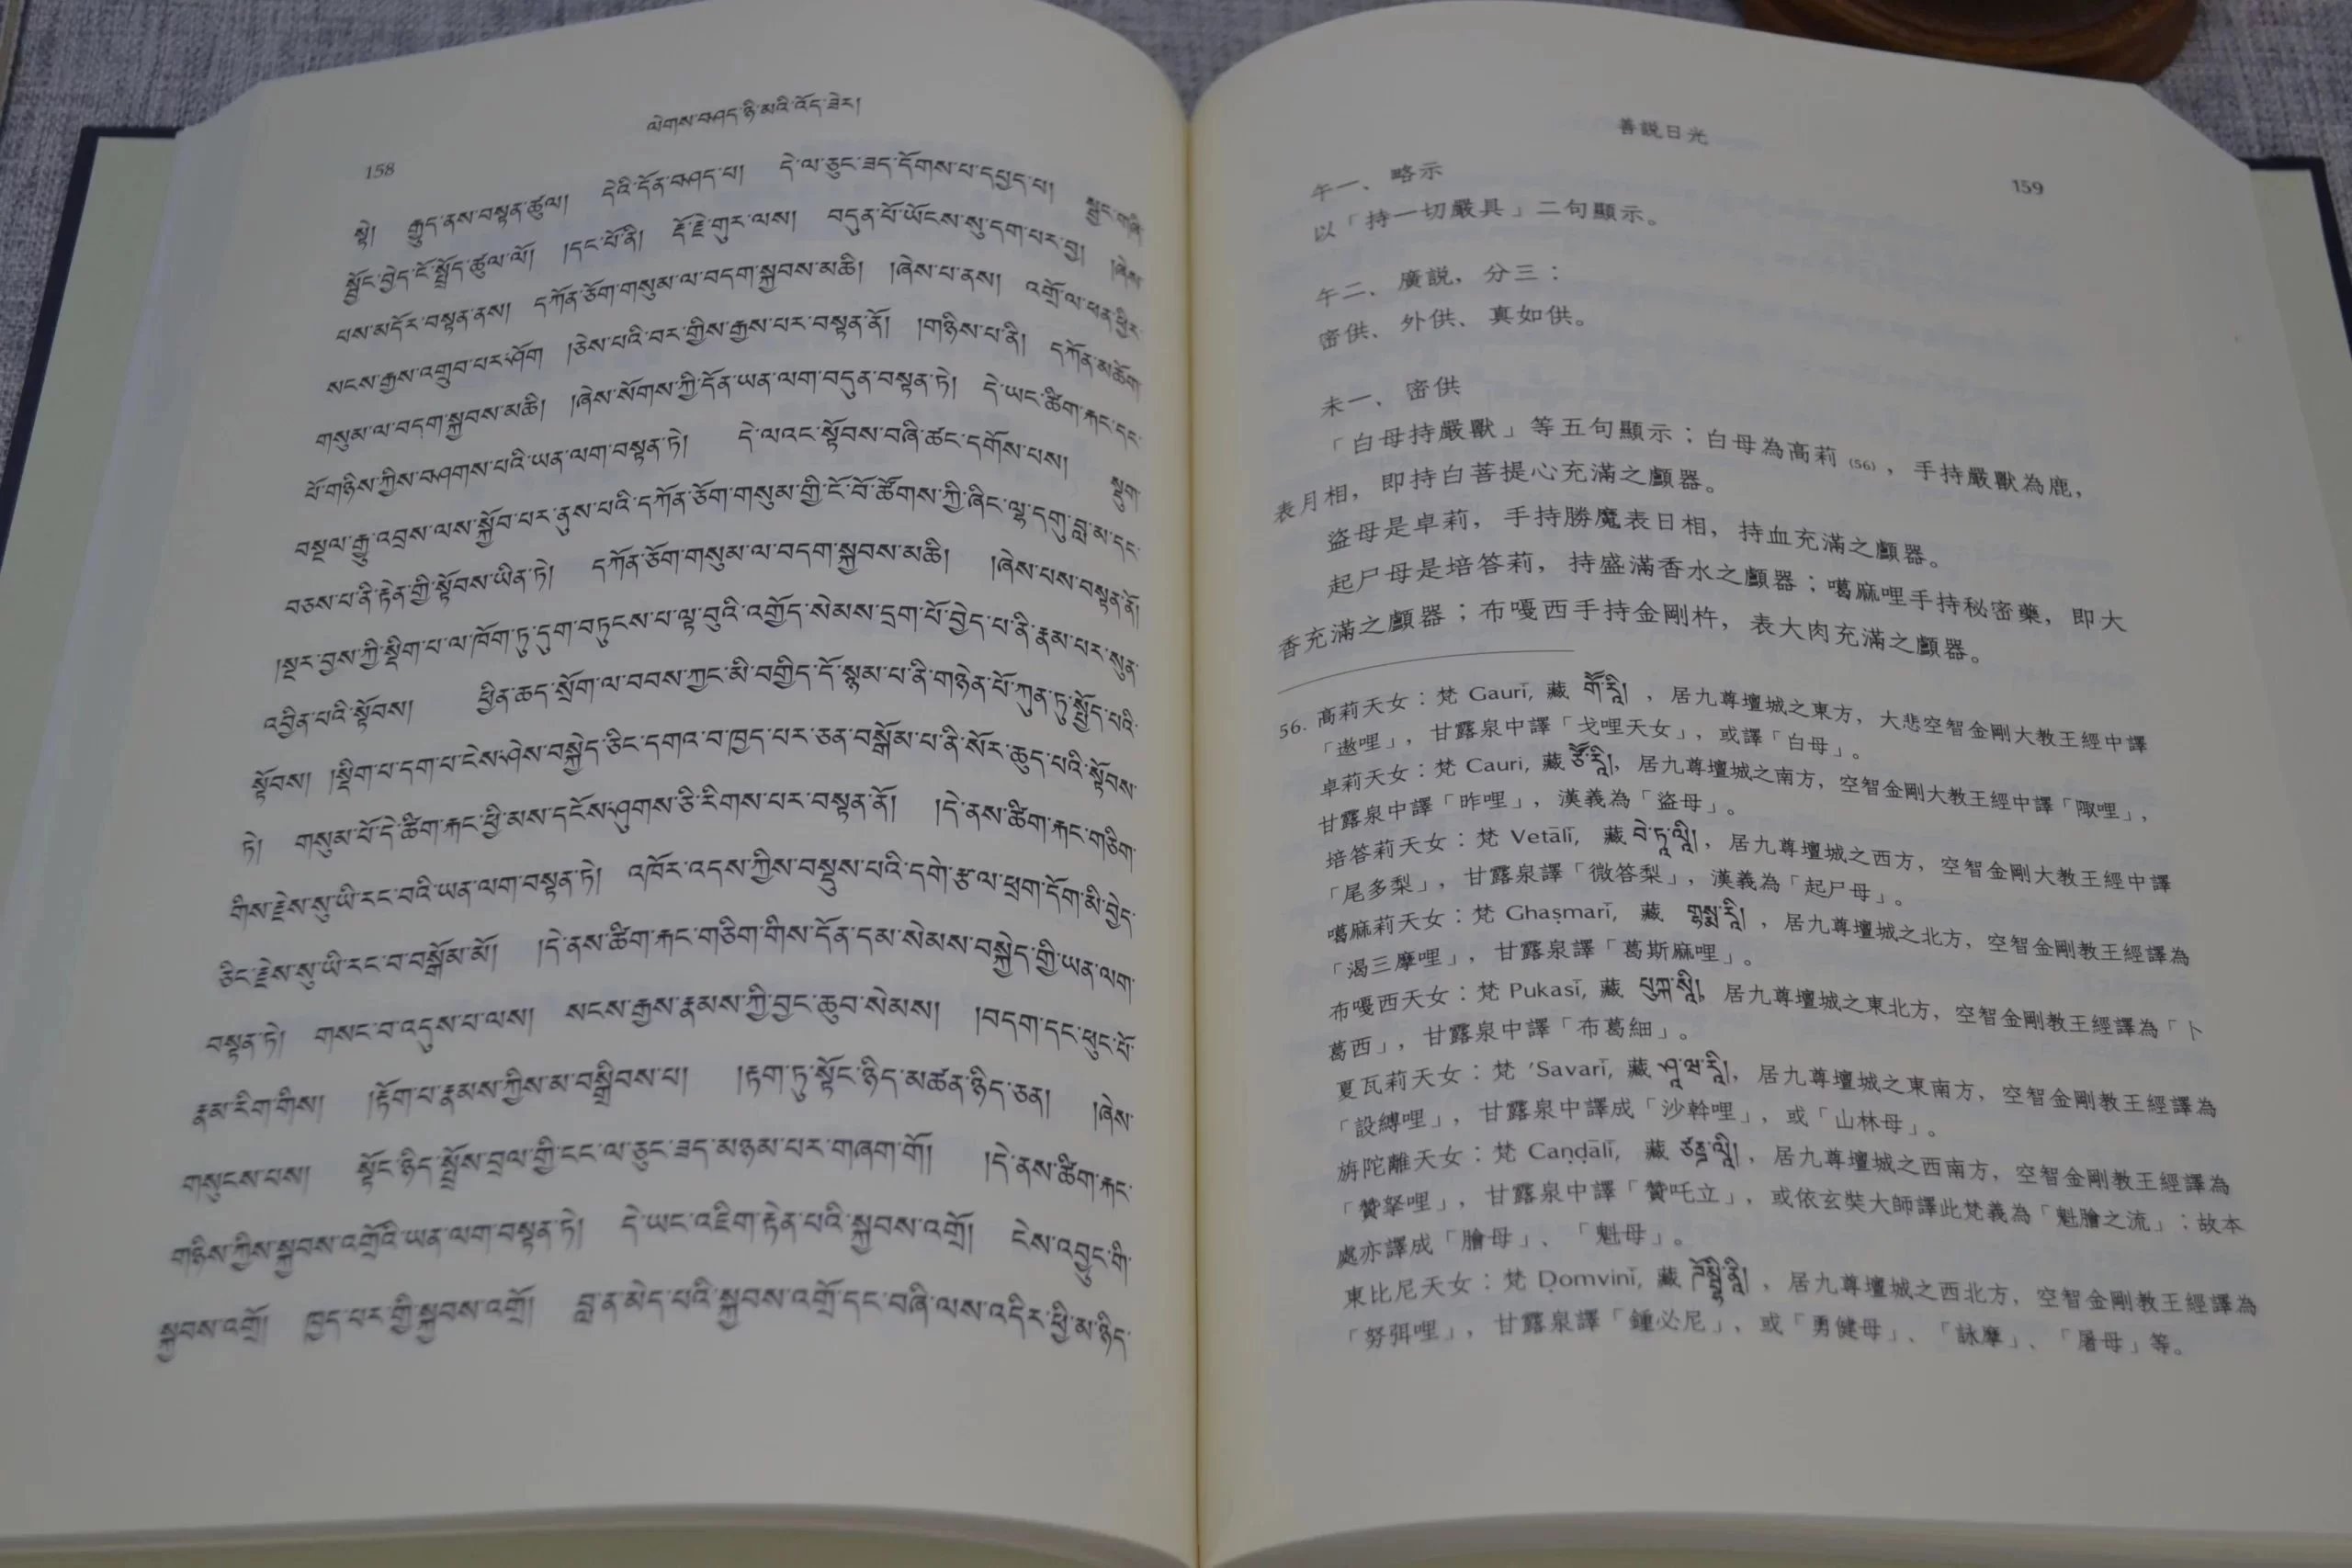 158
ལེགས་བཤད་ཉི་མའི་འོད་ཟེར།
སྟེ། རྒྱུད་ནས་བསྟན་ཚུལ། དེའི་དོན་བཤད་པ། དེ་ལ་ཅུང་ཟད་དོགས་པ་དཔྱད་པ། སྦྱང་གཞི་
སྦྱོང་བྱེད་ངོ་སྤྲོད་ཚུལ་ལོ། །དང་པོ་ནི། རྡོ་རྗེ་གུར་ལས། བདུན་པོ་ཡོངས་སུ་དག་པར་བྱ། །ཞེས་
པས་མདོར་བསྟན་ནས། དཀོན་ཅོག་གསུམ་ལ་བདག་སྐྱབས་མཆི། །ཞེས་པ་ནས། འགྲོ་ལ་ཕན་ཕྱིར་
སངས་རྒྱས་འགྲུབ་པར་ཤོག །ཅེས་པའི་བར་གྱིས་རྒྱས་པར་བསྟན་ནོ། །གཉིས་པ་ནི། དཀོན་མཆོག་
གསུམ་ལ་བདག་སྐྱབས་མཆི། །ཞེས་སོགས་ཀྱི་དོན་ཡན་ལག་བདུན་བསྟན་ཏེ། དེ་ཡང་ཚིག་རྐང་དང་
པོ་གཉིས་ཀྱིས་བཤགས་པའི་ཡན་ལག་བསྟན་ཏེ། དེ་ལའང་སྟོབས་བཞི་ཚང་དགོས་པས། སྡུག་
བསྔལ་རྒྱུ་འབྲས་ལས་སྐྱོབ་པར་ནུས་པའི་དཀོན་ཅོག་གསུམ་གྱི་ངོ་བོ་ཚོགས་ཀྱི་ཞིང་ལྷ་དགུ་བླ་མ་དང་
བཅས་པ་ནི་རྟེན་གྱི་སྟོབས་ཡིན་ཏེ། དཀོན་ཅོག་གསུམ་ལ་བདག་སྐྱབས་མཆི། །ཞེས་པས་བསྟན་ནོ།
།སྔར་བྱས་ཀྱི་སྡིག་པ་ལ་ཁོག་ཏུ་དུག་བཏུངས་པ་ལྟ་བུའི་འགྱོད་སེམས་དྲག་པོ་བྱེད་པ་ནི་རྣམ་པར་སུན་
འབྱིན་པའི་སྟོབས། ཕྱིན་ཆད་སྲོག་ལ་བབས་ཀྱང་མི་བགྱིད་དོ་སྙམ་པ་ནི་གཉེན་པོ་ཀུན་ཏུ་སྤྱོད་པའི་
སྟོབས། །སྡིག་པ་དག་པ་ངེས་ཤེས་བསྐྱེད་ཅིང་དགའ་བ་ཁྱད་པར་ཅན་བསྒོམ་པ་ནི་སོར་ཆུད་པའི་སྟོབས་
ཏེ། གསུམ་པོ་དེ་ཚིག་རྐང་ཕྱི་མས་དངོས་ཤུགས་ཅི་རིགས་པར་བསྟན་ནོ། །དེ་ནས་ཚིག་རྐང་གཅིག་
གིས་རྗེས་སུ་ཡི་རང་བའི་ཡན་ལག་བསྟན་ཏེ། འཁོར་འདས་ཀྱིས་བསྡུས་པའི་དགེ་རྩ་ལ་ཕྲག་དོག་མི་བྱེད་
ཅིང་རྗེས་སུ་ཡི་རང་བ་བསྒོམ་མོ། །དེ་ནས་ཚིག་རྐང་གཅིག་གིས་དོན་དམ་སེམས་བསྐྱེད་ཀྱི་ཡན་ལག་
བསྟན་ཏེ། གསང་བ་འདུས་པ་ལས། སངས་རྒྱས་རྣམས་ཀྱི་བྱང་ཆུབ་སེམས། །བདག་དང་ཕུང་པོ་
རྣམ་རིག་གིས། །རྟོག་པ་རྣམས་ཀྱིས་མ་བསྒྲིབས་པ། །རྟག་ཏུ་སྟོང་ཉིད་མཚན་ཉིད་ཅན། །ཞེས་
གསུངས་པས། སྟོང་ཉིད་སྤྲོས་བྲལ་གྱི་ངང་ལ་ཅུང་ཟད་མཉམ་པར་གཞག་གོ། །དེ་ནས་ཚིག་རྐང་
གཉིས་ཀྱིས་སྐྱབས་འགྲོའི་ཡན་ལག་བསྟན་ཏེ། དེ་ཡང་འཇིག་རྟེན་པའི་སྐྱབས་འགྲོ། ངེས་འབྱུང་གི་
སྐྱབས་འགྲོ། ཁྱད་པར་གྱི་སྐྱབས་འགྲོ། བླ་ན་མེད་པའི་སྐྱབས་འགྲོ་དང་བཞི་ལས་འདིར་ཕྱི་མ་ཉིད་
善説日光
159
午一、略示
以「持一切嚴具」二句顯示。
午二、廣説，分三：
密供、外供、真如供。
未一、密供
「白母持嚴獸」等五句顯示；白母為高莉(56)，手持嚴獸為鹿，
表月相，即持白菩提心充滿之顱器。
盜母是卓莉，手持勝魔表日相，持血充滿之顱器。
起尸母是培答莉，持盛滿香水之顱器；噶麻哩手持秘密藥，即大
香充滿之顱器；布嘎西手持金剛杵，表大肉充滿之顱器。
56. 高莉天女：梵 Gaurī, 藏 གཽ་རཱི།，居九尊壇城之東方，大悲空智金剛大教王經中譯
「遨哩」，甘露泉中譯「戈哩天女」，或譯「白母」。
卓莉天女：梵 Cauri, 藏 ཙཽ་རཱི།，居九尊壇城之南方，空智金剛大教王經中譯「陬哩」，
甘露泉中譯「昨哩」，漢義為「盜母」。
培答莉天女：梵 Vetālī, 藏 བེ་ཏཱ་ལཱི།，居九尊壇城之西方，空智金剛大教王經中譯
「尾多梨」，甘露泉譯「微答梨」，漢義為「起尸母」。
噶麻莉天女：梵 Ghaṣmarī, 藏 གྷསྨ་རཱི།，居九尊壇城之北方，空智金剛教王經譯為
「渴三摩哩」，甘露泉譯「葛斯麻哩」。
布嘎西天女：梵 Pukasī, 藏 པུཀྐ་སཱི།，居九尊壇城之東北方，空智金剛教王經譯為「卜
葛西」，甘露泉中譯「布葛細」。
夏瓦莉天女：梵 'Savarī, 藏 ཤཱ་ཝ་རཱི།，居九尊壇城之東南方，空智金剛教王經譯為
「設縛哩」，甘露泉中譯成「沙斡哩」，或「山林母」。
旃陀離天女：梵 Caṇḍālī, 藏 ཙཎྜ་ལཱི།，居九尊壇城之西南方，空智金剛教王經譯為
「贊拏哩」，甘露泉中譯「贊吒立」，或依玄奘大師譯此梵義為「魁膾之流」；故本
處亦譯成「膾母」、「魁母」。
東比尼天女：梵 Ḍomvinī, 藏 ཌོམྦི་ནཱི།，居九尊壇城之西北方，空智金剛教王經譯為
「努弭哩」，甘露泉譯「鍾必尼」，或「勇健母」、「詠摩」、「屠母」等。